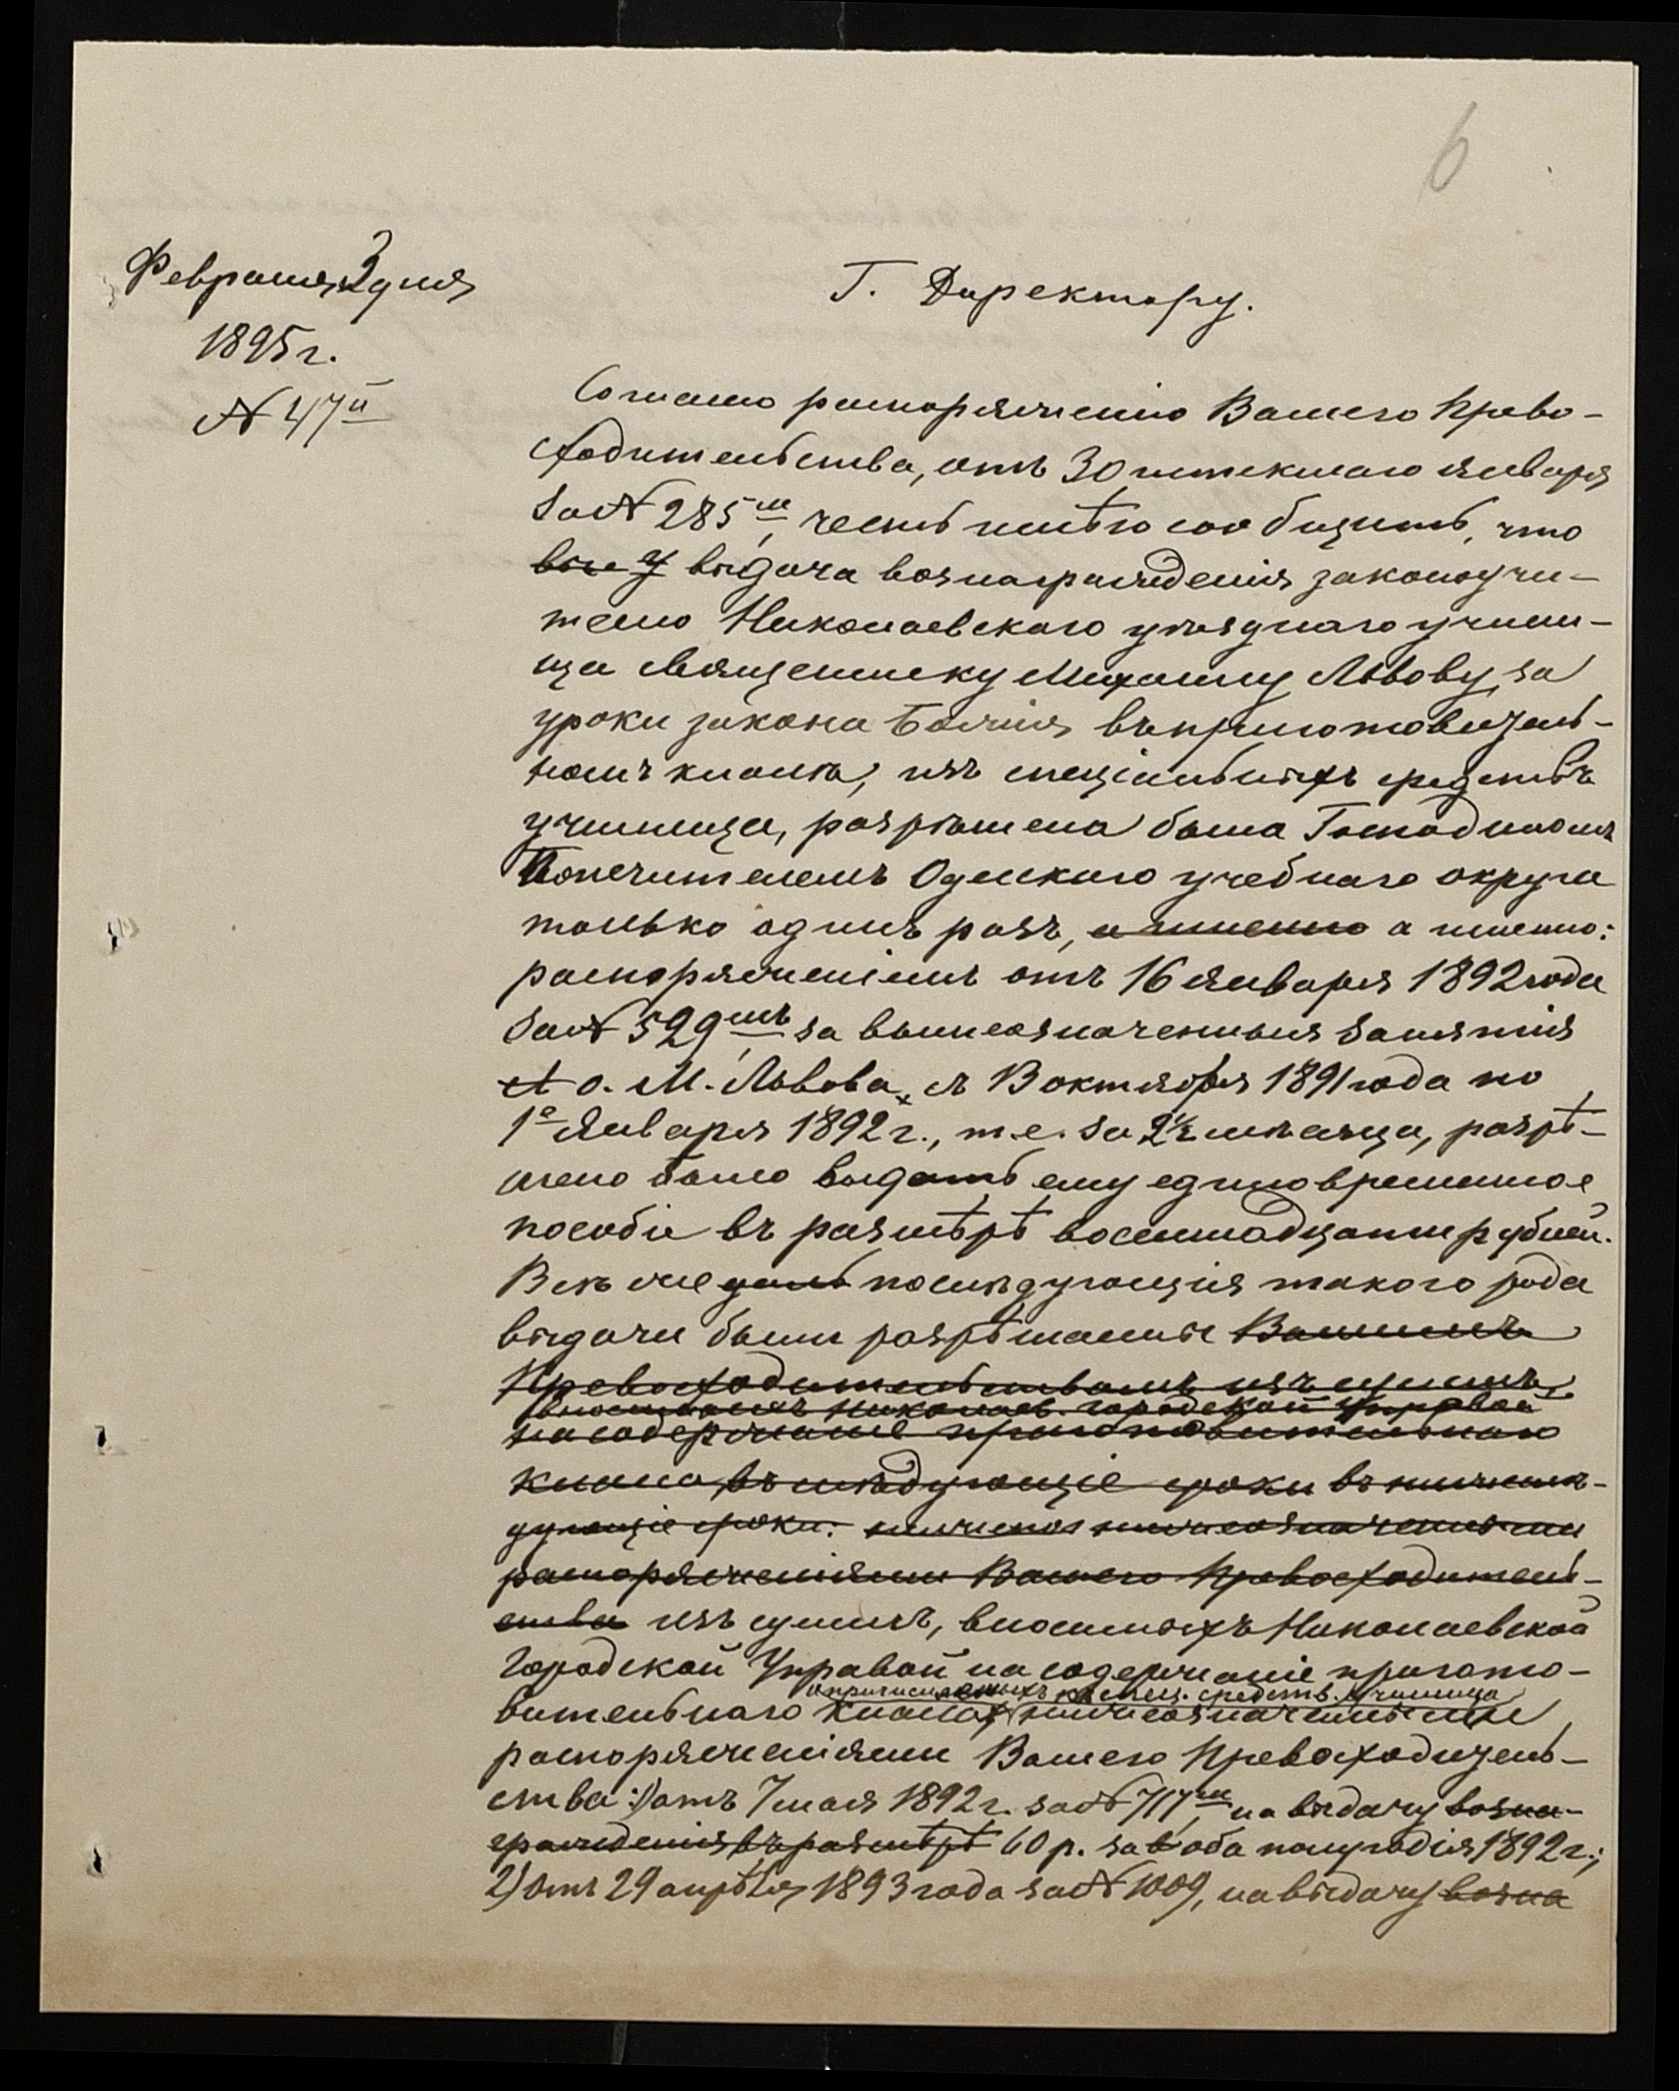 6
Февраля 3 дня
1895 г.
№ 47й
Г. Директору.
Согласно распоряженію Вашего Прево-
сходительства, отъ 30 истекшаго января
за № 285мъ, честь имѣю сообщить, что
выдача вознагражденія законоучи-
телю Николаевскаго уѣзднаго учили-
ща священнику Михаилу Львову, за
уроки закона Божія въ приготовитель-
номъ классѣ, изъ спеціальныхъ средствъ
училища, разрѣшена была Господиномъ
Попечителемъ Одесскаго учебнаго округа
только одинъ разъ, а именно а именно:
распоряженіемъ отъ 16 января 1892 года
за № 529мъ за вышеозначенныя занятія
о. М. Львова, съ 13 октября 1891 года по
1е января 1892 г., т. е. за 2½ мѣсяца, разрѣ-
шено было выдать ему единовременное
пособіе въ размѣрѣ восемнадцати рублей.
Всѣ же послѣдующія такого рода
выдачи были разрѣшаемы Вашимъ
Превосходительствомъ изъ суммъ,
вносимыхъ Николаев. городской Управой
на содержаніе приготовительнаго
класса, въ слѣдующіе сроки въ нижеслѣ-
дующіе сроки: нижеозначенными
распоряженіями Вашего Превосходитель-
ства изъ суммъ, вносимыхъ Николаевской
Городской Управой на содержаніе пригото-
и причисляемыхъ къ спец. средств. училища
вительнаго класса, нижеозначенными
распоряженіями Вашего Превосходитель-
ства: 1) отъ 7 мая 1892 г. за № 717мъ, на выдачу возна-
гражденія въ размѣрѣ 60 р. за оба полугодія 1892 г.;
2) отъ 29 апрѣля 1893 года за № 1009, на выдачу возна